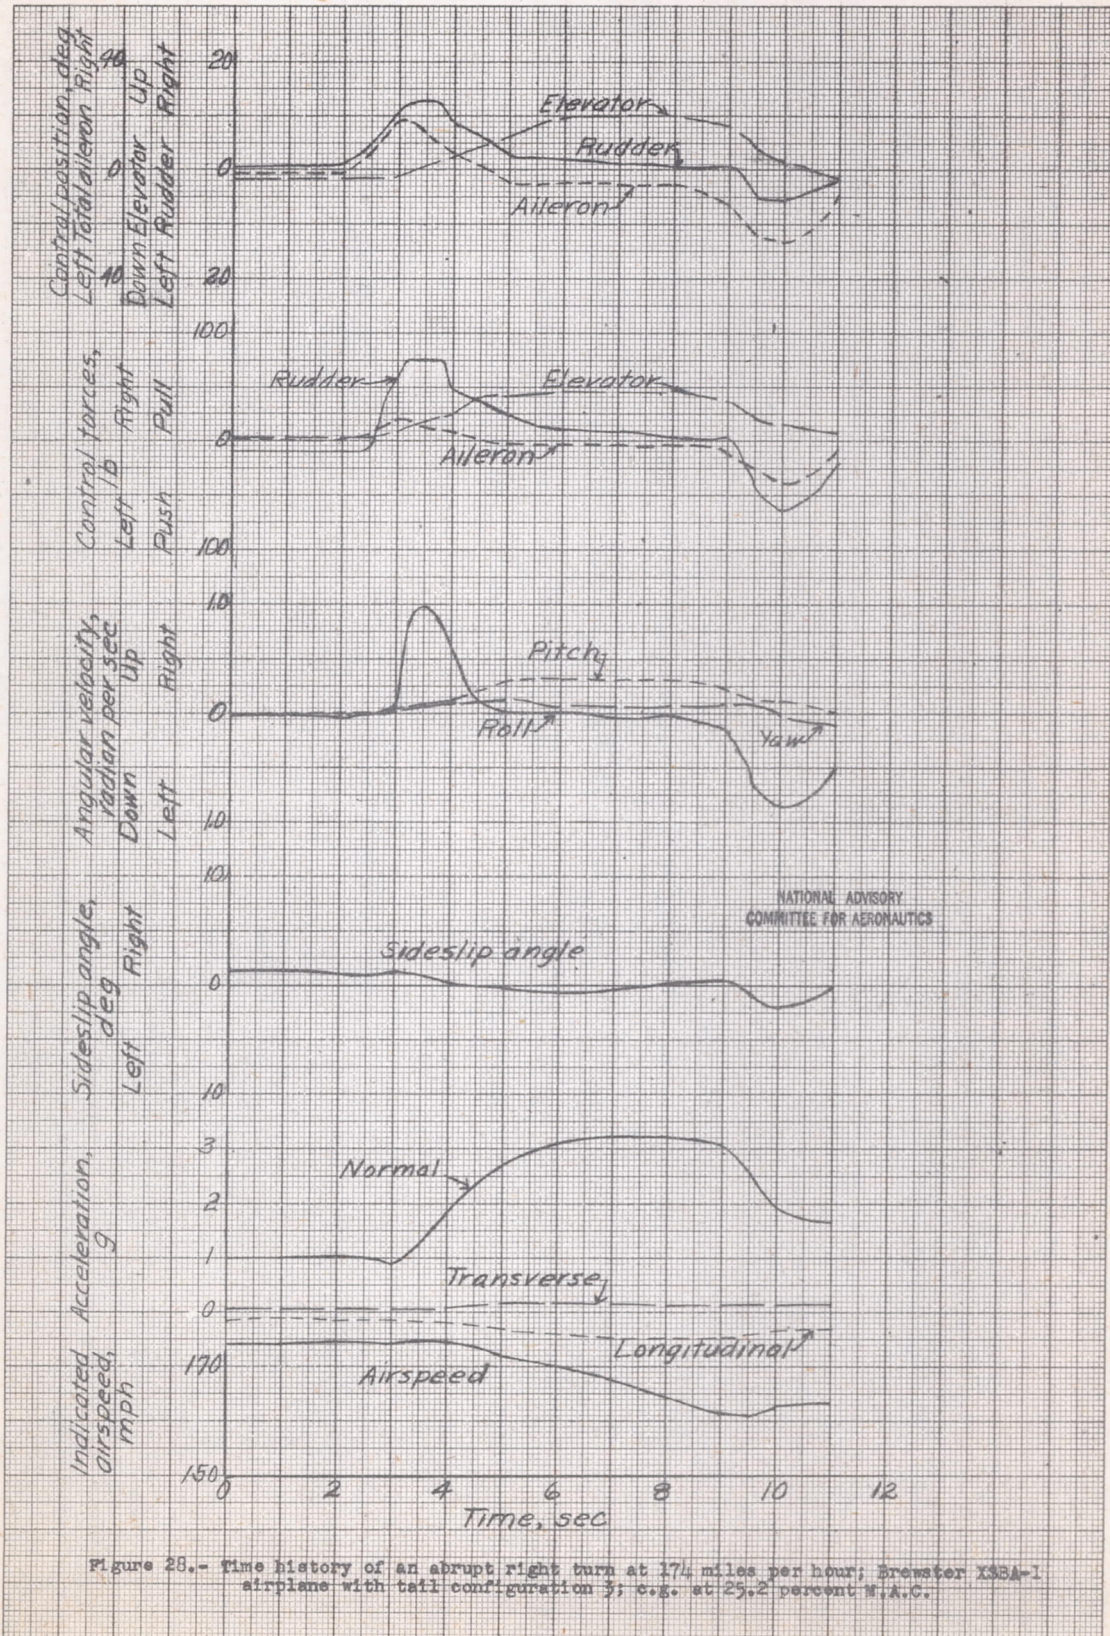 Control position, deg
Left Total aileron Right
Down Elevator Up
Left Rudder Right
40
0
40
20
0
20
Elevator
Rudder
Aileron
Control forces,
lb
Left Right
Push Pull
100
0
100
Rudder
Elevator
Aileron
Angular velocity,
radian per sec
Down Up
Left Right
1.0
0
1.0
Pitch
Roll
Yaw
NATIONAL ADVISORY
COMMITTEE FOR AERONAUTICS
Sideslip angle,
deg
Left Right
10
0
10
Sideslip angle
Acceleration,
g
3
2
1
0
Normal
Transverse
Longitudinal
Indicated
airspeed,
mph
170
150
Airspeed
0 2 4 6 8 10 12
Time, sec
Figure 28.- Time history of an abrupt right turn at 174 miles per hour; Brewster XSBA-1
airplane with tail configuration 3; c.g. at 25.2 percent M.A.C.